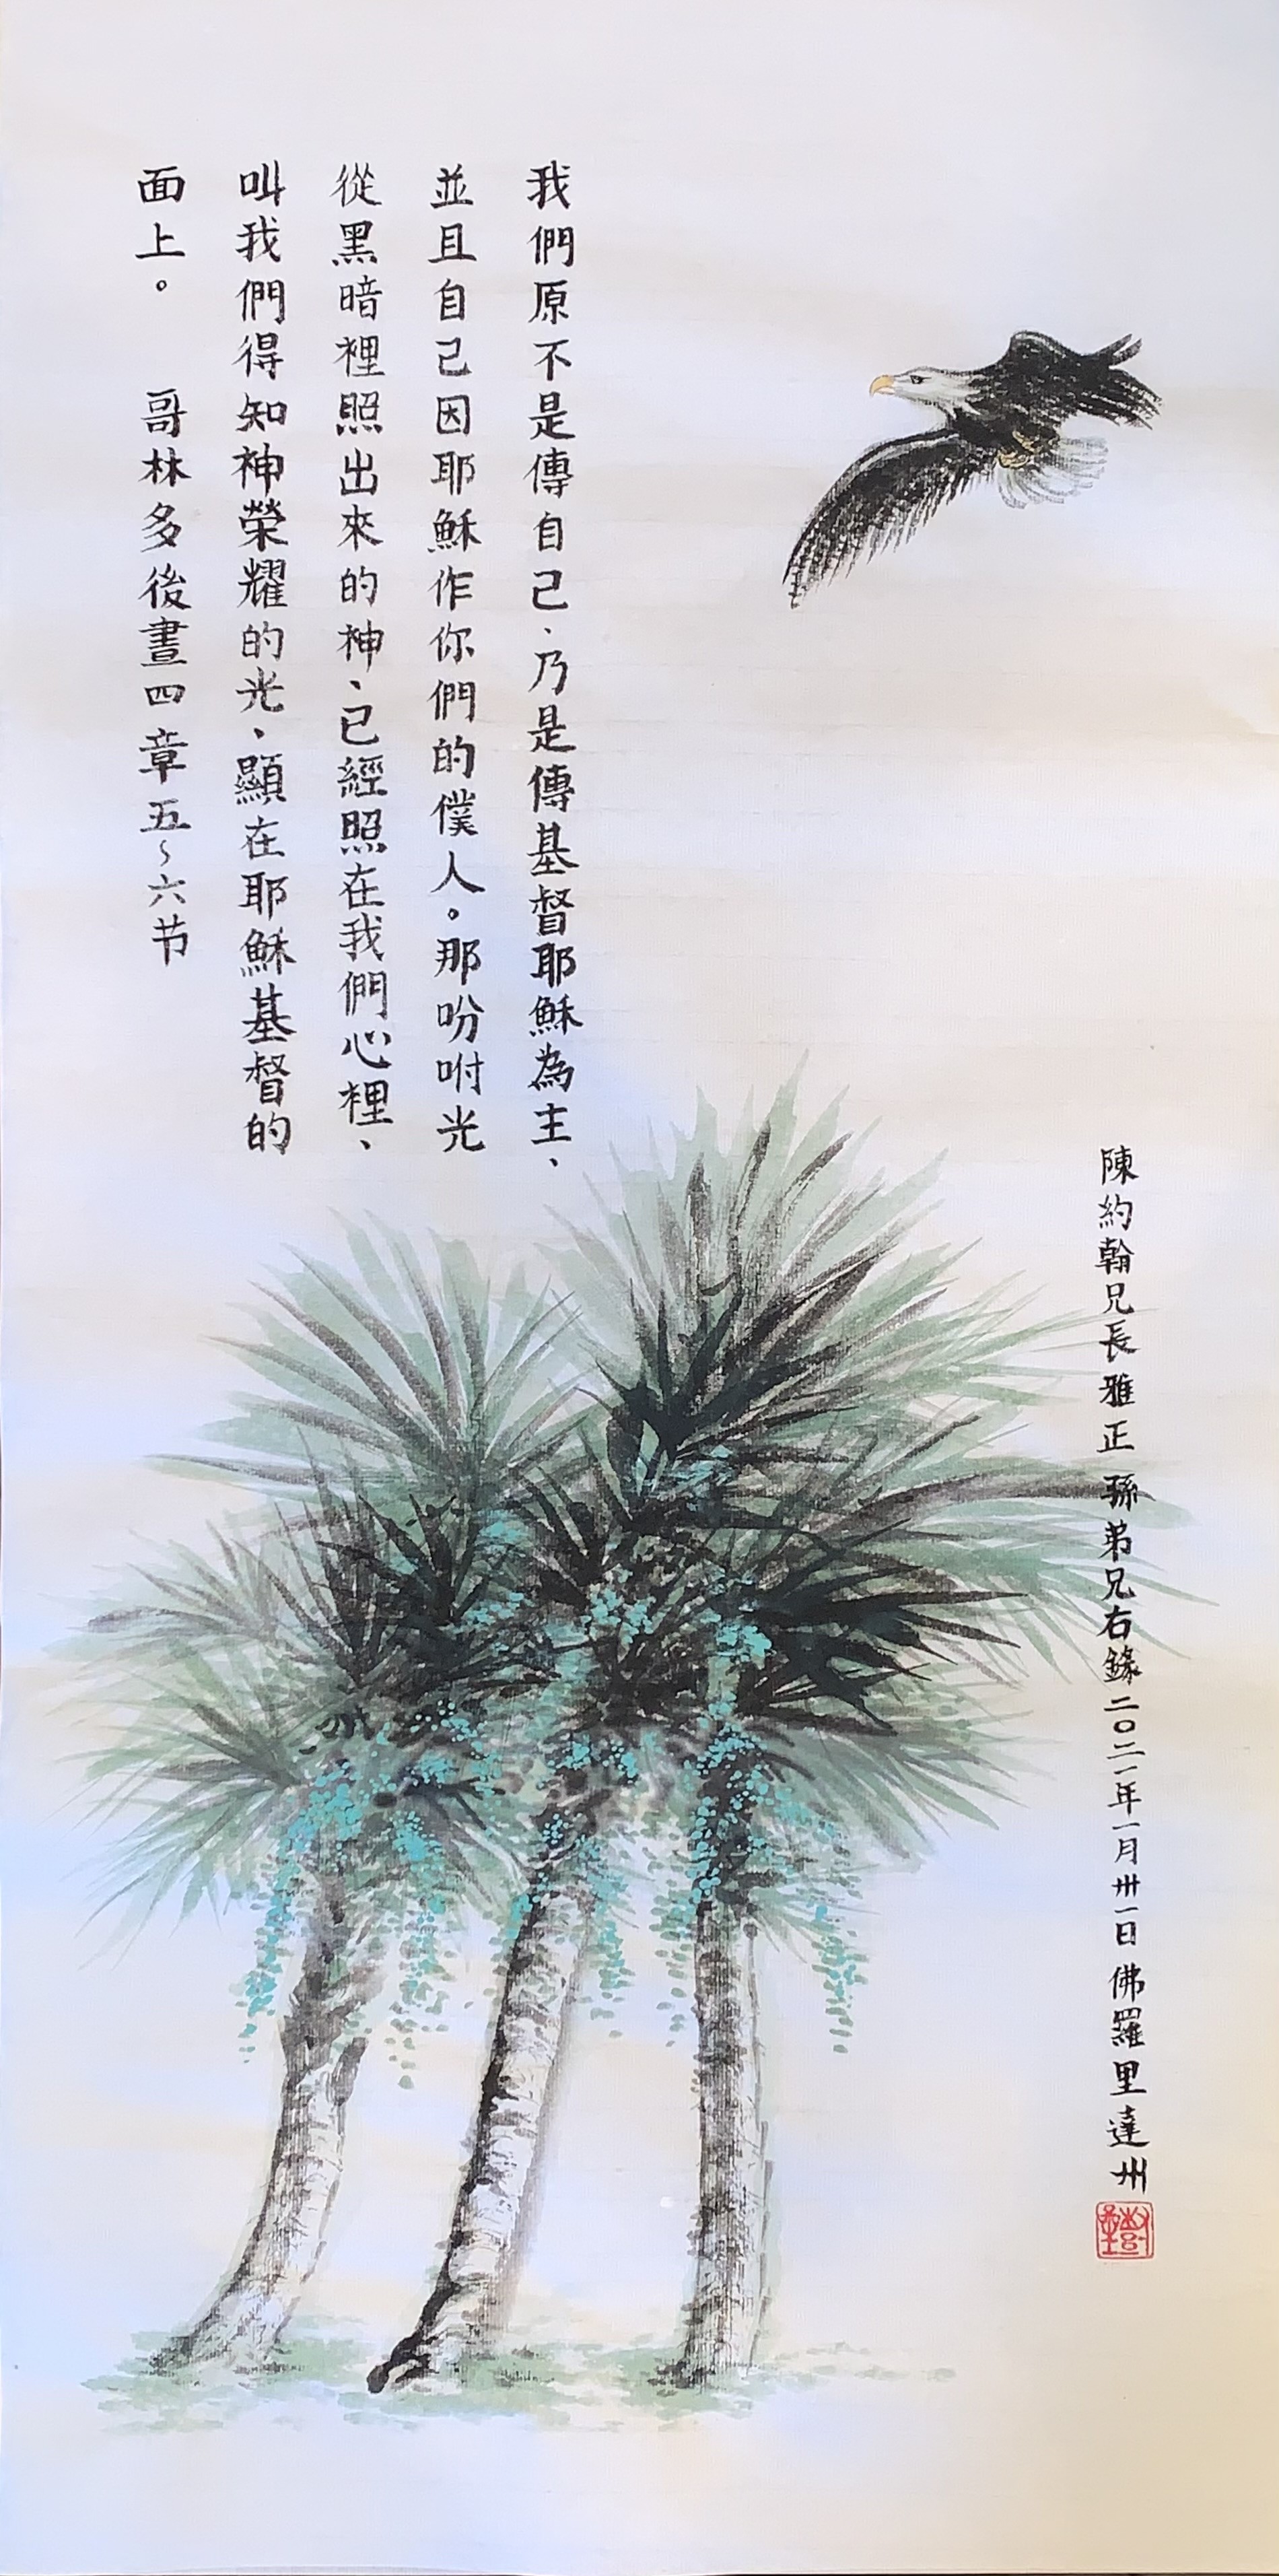 我們原不是傳自己、乃是傳基督耶穌為主、
並且自己因耶穌作你們的僕人。那吩咐光
從黑暗裡照出來的神、已經照在我們心裡、
叫我們得知神榮耀的光、顯在耶穌基督的
面上。 哥林多後晝四章五~六节
陳約翰兄長雅正 孫弟兄右錄二〇二一年一月卅一日佛羅里達州